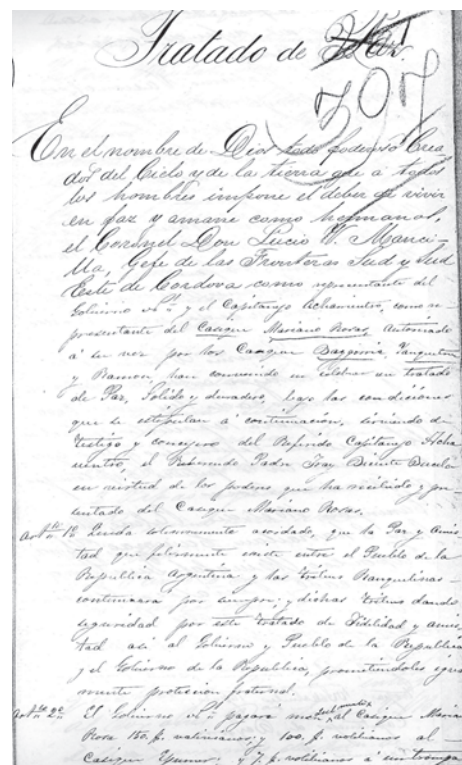 Tratado de Paz.
307
En el nombre de Dios todo poderoso Crea
dor del Cielo y de la tierra que a todos
los hombres impone el deber de vivir
en paz y amarse como hermanos,
el Coronel Don Lucio V. Manci-
lla, Gefe de las Fronteras Sud y Sud
Este de Cordova como representante del
Gobierno y el Capitanejo Achauentro, como re-
presentante del Casique Mariano Rosas, autorizado
á su vez por los Casiques Baygorria Yanquetruz
y Ramon, han convenido en celebrar un tratado
de Paz, Sólido y duradero, bajo las condiciones
que se estipulan á continuación, sirviendo de
testigo y consejero del Referido Capitanejo Acha
uentro, el Reverendo Padre Fray Burela
en virtud de los poderes que ha recibido y pre-
sentado del Casique Mariano Rosas.
Art 1º Queda solennemente acordado, que la Paz y amis
tad que felismente existe entre el Pueblo de la
Republica Argentina y las tribus Ranquelinas
continuara por siempre; y dichas tribus dando
seguridad por este tratado de Fidelidad y amis
tad asi al Gobierno y Pueblo de la Republica
y el Gobierno de la Republica, prometiendoles
mente protesion fraternal.
Art 2º El Gobierno pagará al Casique Maria
Rosas 150. p. bolivianos; y 100. p. bolivianos al
Casique Epumer; y 7. p. bolivianos á un trompa